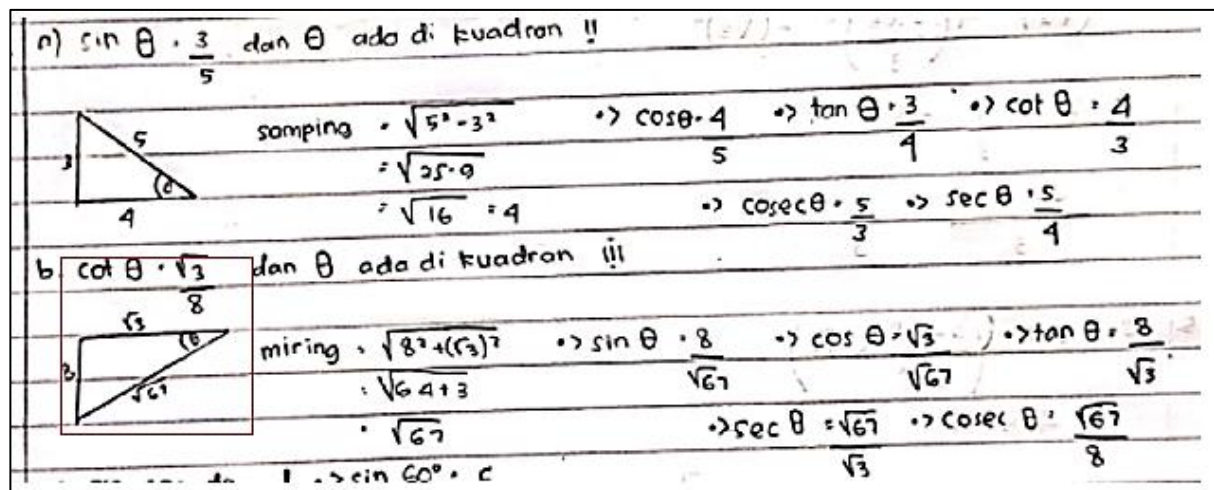 a) sin θ = 3/5 dan θ ada di kuadran II
3 5 θ 4
samping = √5² - 3²
= √25 - 9
= √16 = 4
•> cos θ = 4/5 •> tan θ = 3/4 •> cot θ = 4/3
•> cosec θ = 5/3 •> sec θ = 5/4
b. cot θ = √3/8 dan θ ada di kuadran iii
√3 θ 8 √67
miring = √8² + (√3)²
= √64 + 3
= √67
•> sin θ = 8/√67 •> cos θ = √3/√67 •> tan θ = 8/√3
•> sec θ = √67/√3 •> cosec θ = √67/8
•> sin 60° =